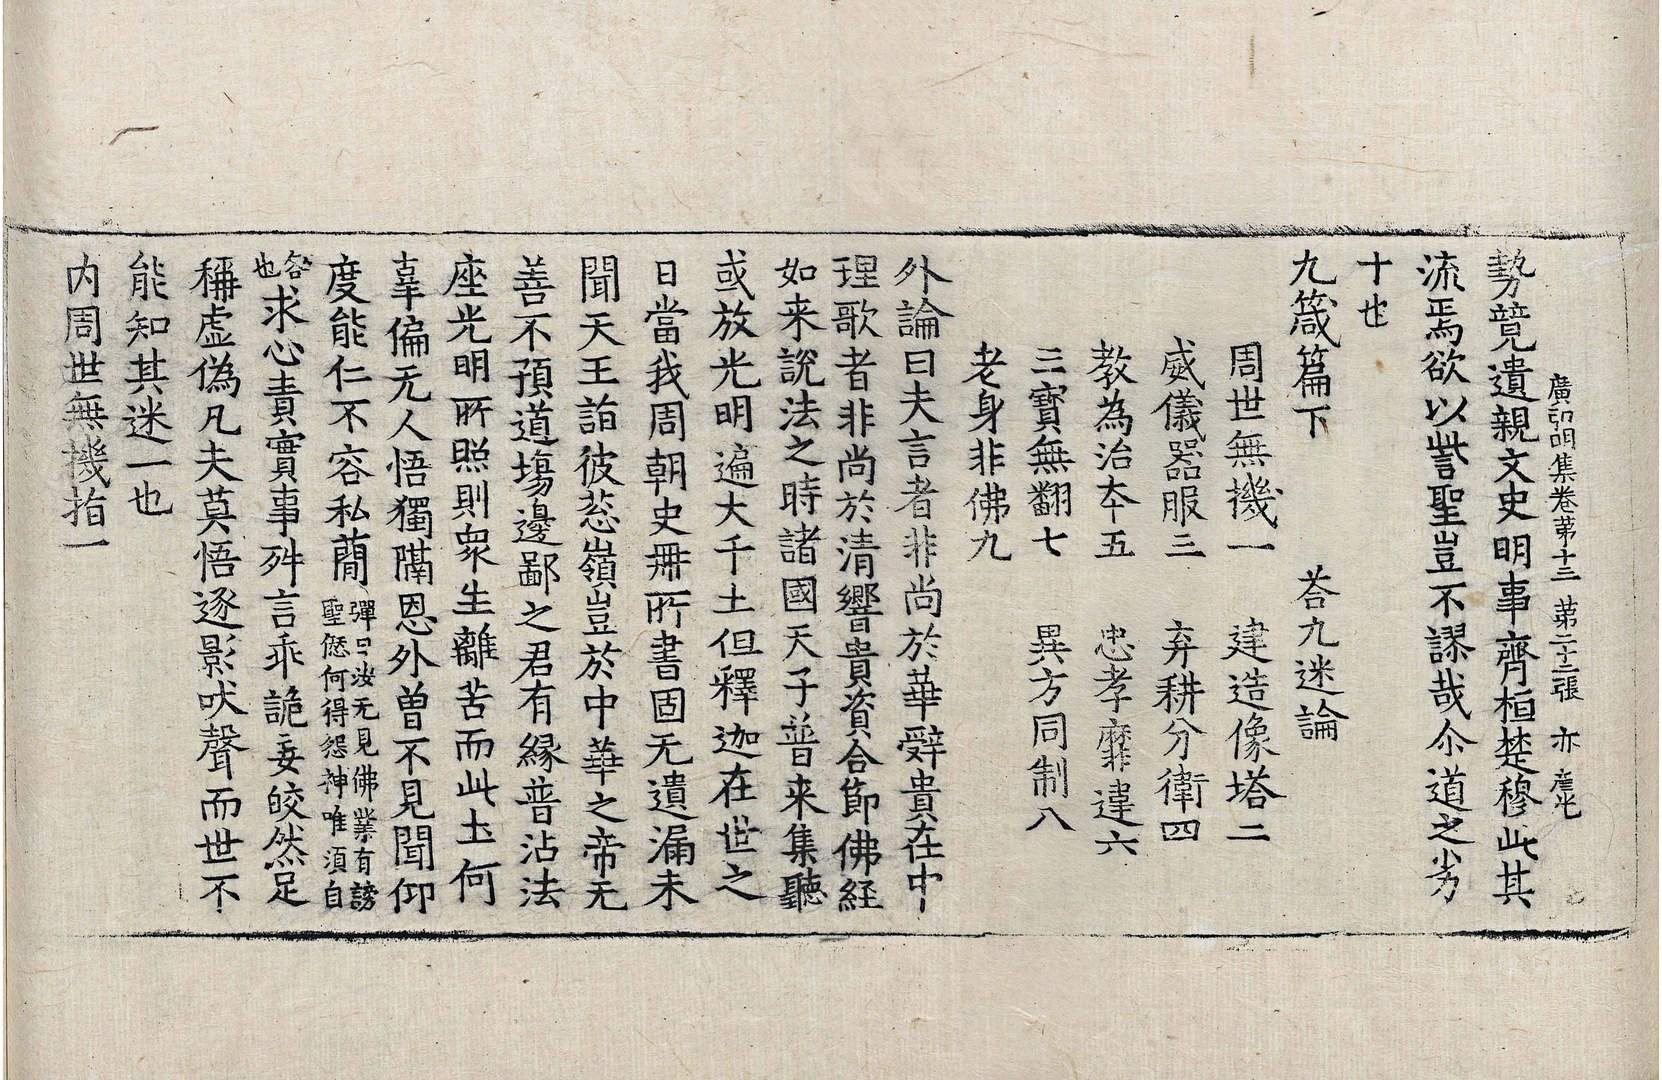 廣弘明集卷第十三 第二十二張 亦
勢競遺親文史明事齊桓楚穆此其
流焉欲以訾聖豈不謬哉尒道之劣
十也
九箴篇下 荅九迷論
周世無機一 建造像塔二
威儀器服三 弃耕分衛四
教為治夲五 忠孝靡違六
三寶無翻七 異方同制八
老身非佛九
外論曰夫言者非尚於華辤貴在中
理歌者非尚於清響貴資合節佛經
如来說法之時諸國天子普来集聽
或放光明遍大千土但釋迦在世之
日當我周朝史冊所書固无遺漏未
聞天王詣彼葱嶺豈於中華之帝无
善不預道場邊鄙之君有緣普沾法
座光明所照則衆生離苦而此土何
辜偏无人悟獨隔恩外曽不見聞仰
度能仁不容私蕳 彈曰汝无見佛業有謗
聖愆何得怨神唯須自
咎
也 求心責實事舛言乖詭妄皎然足
稱虛偽凡夫莫悟逐影吠聲而世不
能知其迷一也
内周世無機指一